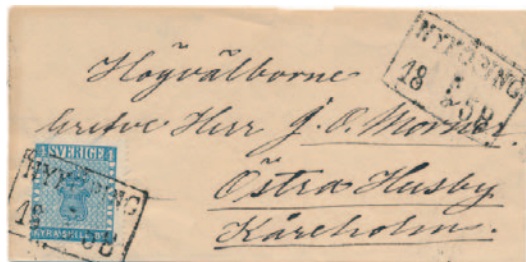 NYKÖPING
18 58
Högvälborne
Grefve Herr J. O. Mörner.
Östra Husby
Kåreholm.
4 SVERIGE 4
FYRA SKILL. BCO
NYKÖPING
18 58